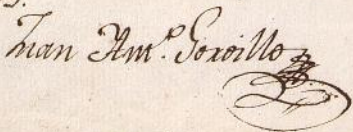 Juan Antº. Goroillo